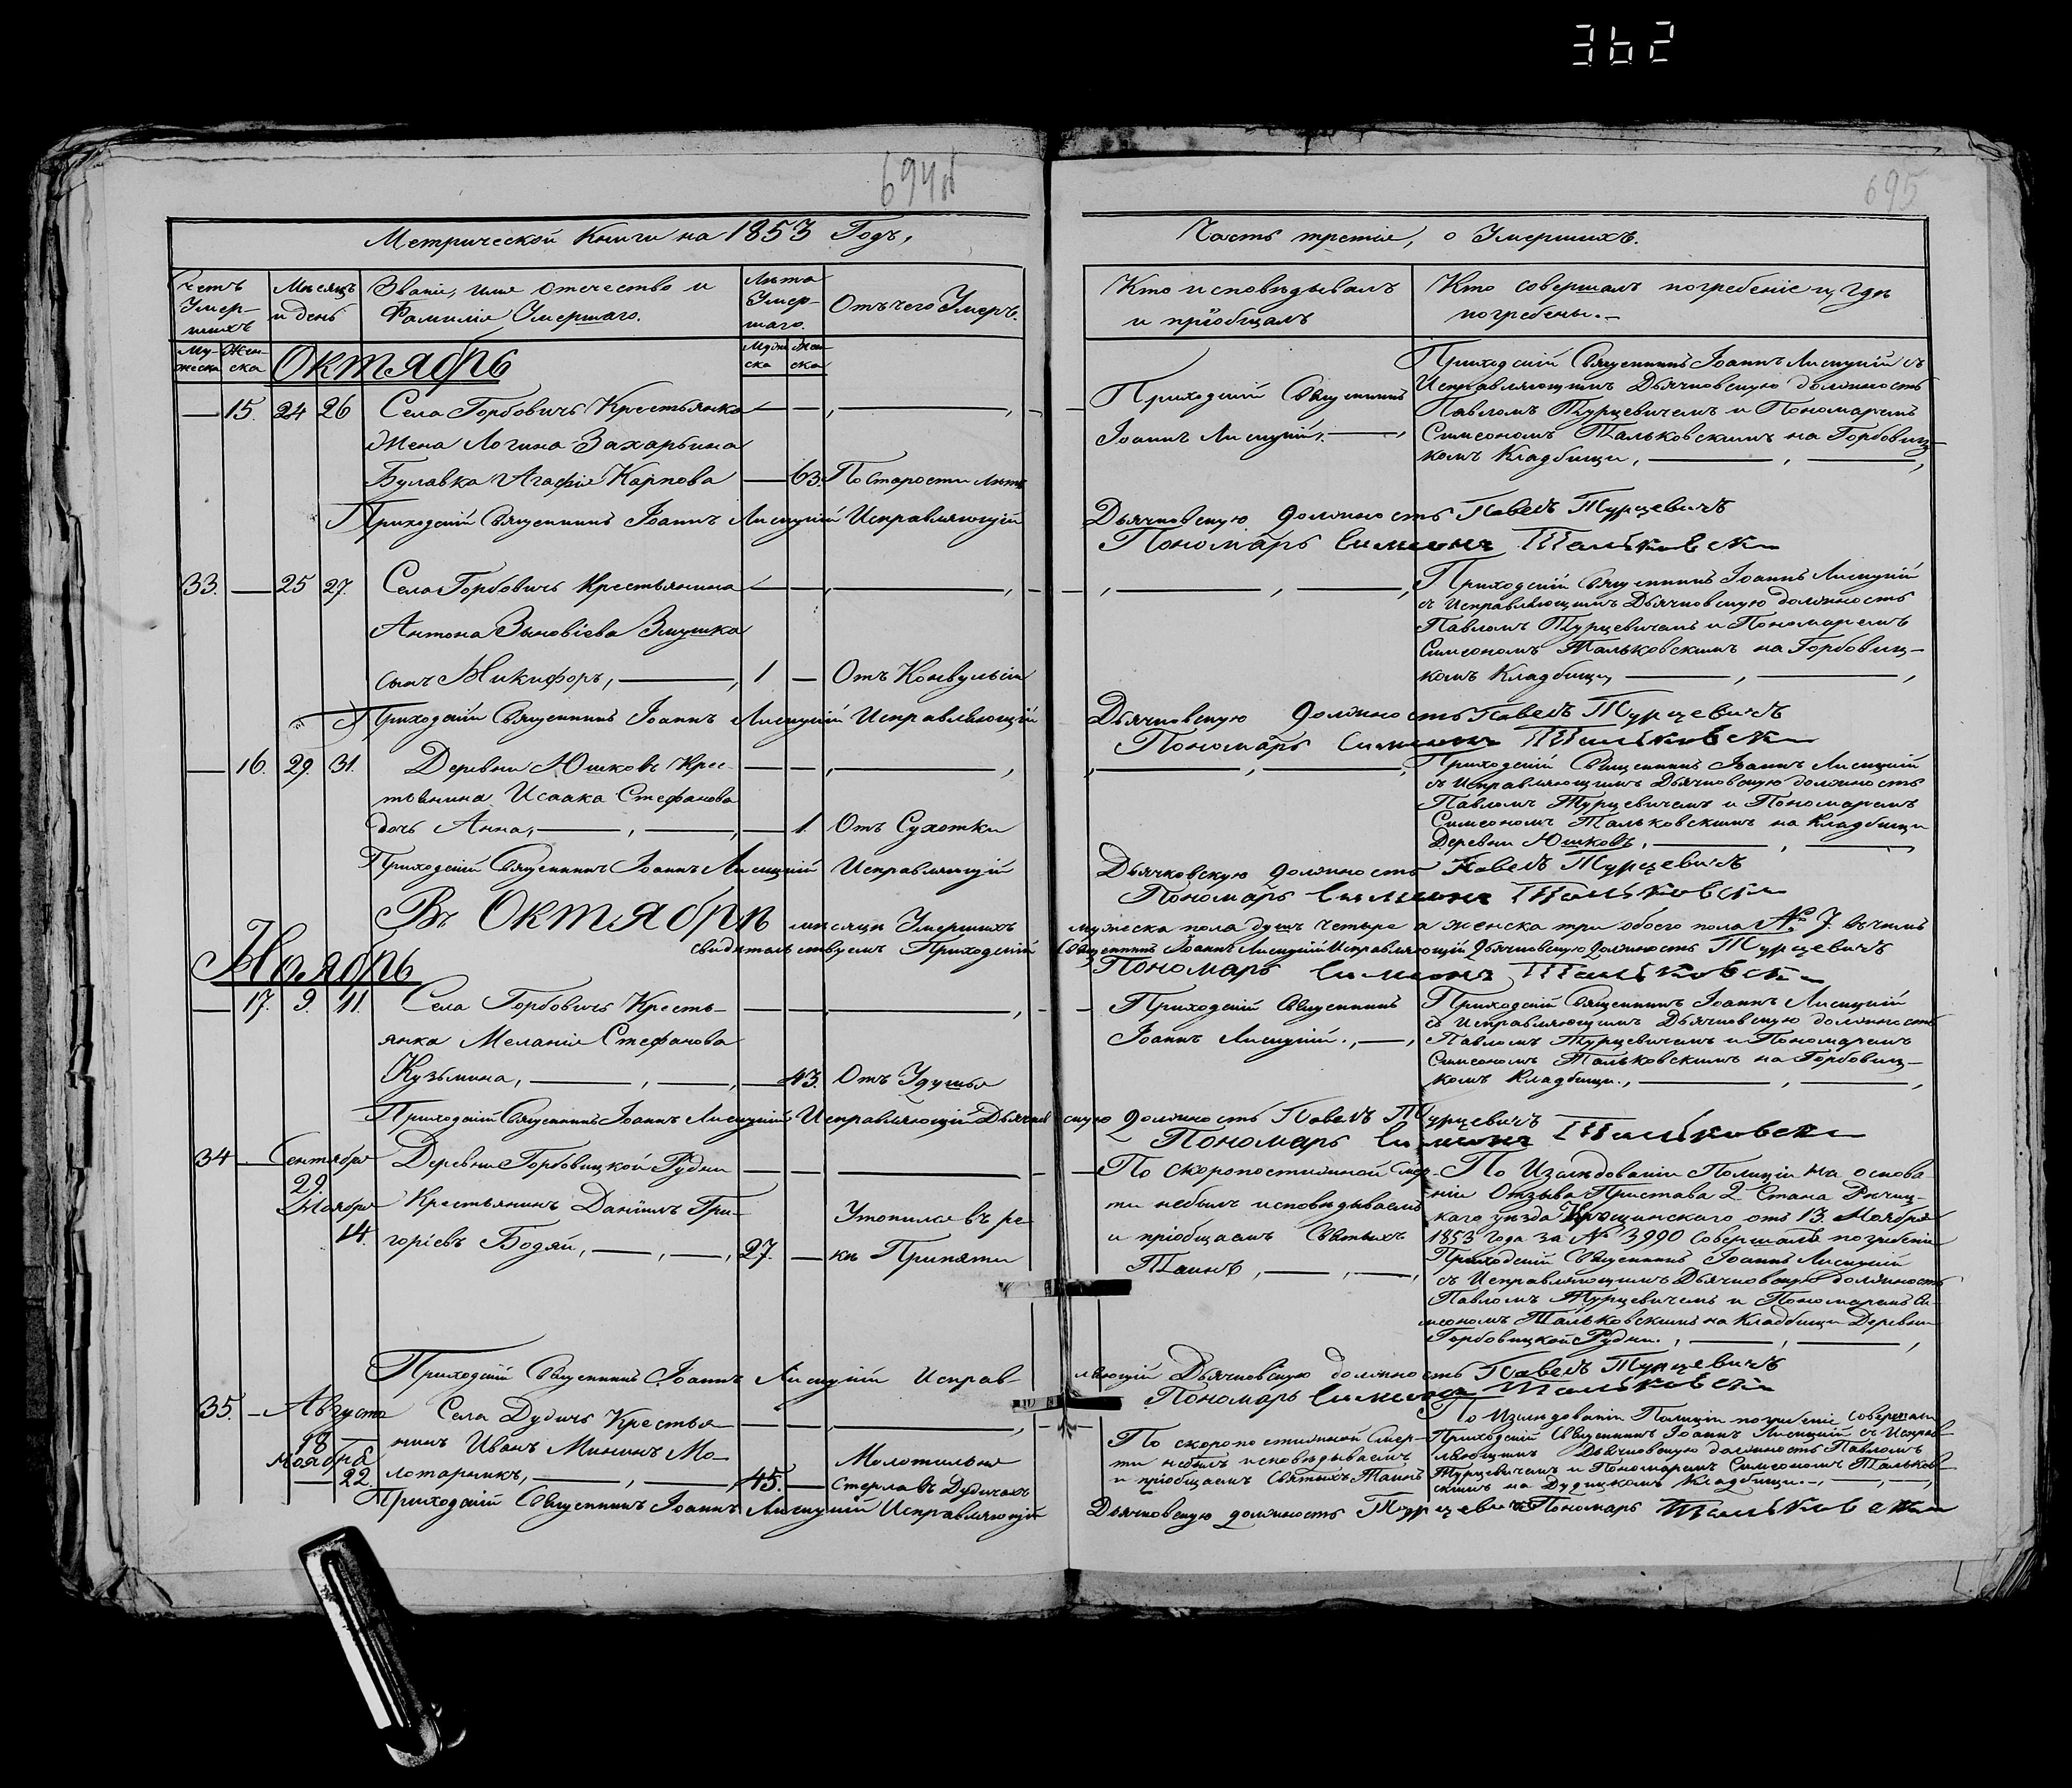 362
694
695
Метрической Книги на 1853 Годъ,
Часть третія, о Умершихъ.
Счетъ Умер-шихъ
Мѣсяцъ и день
Званіе, имя отечество и Фамилія Умершаго.
Лѣта Умер-шаго.
Отъ чего Умеръ.
Кто исповѣдывалъ и пріобщалъ
Кто совершалъ погребеніе и гдѣ погребены.
Му-жеска
Жен-ска
Муже ска
Жен ска
Октябрь
15. 24 26 Села Горбовичъ Крестьянка
Жена Логина Захарьина
Булавка Агафія Карпова — 63. По Старости лѣтъ
Приходскій Священникъ
Іоаннъ Лисицкій,
Приходскій Священникъ Іоаннъ Лисицкій съ
Исправляющимъ Дьячковскую должность
Павломъ Турцевичемъ и Пономаремъ
Симеономъ Тальковскимъ на Горбовиц-
комъ Кладбищи,
Приходскій Священникъ Іоаннъ Лисицкій Исправляющій Дьячковскую должность Павелъ Турцевичъ
Пономарь Симеонъ Тальковски
33. — 25 27. Села Горбовичъ Крестьянина
Антона Зыновіева
сынъ Никифоръ, 1 — Отъ Конвульсіи
Приходскій Священникъ Іоаннъ Лисицкій
съ Исправляющимъ Дьячковскую должность
Павломъ Турцевичемъ и Пономаремъ
Симеономъ Тальковскимъ на Горбовиц-
комъ Кладбищи,
Приходскій Священникъ Іоаннъ Лисицкій Исправляющій Дьячковскую должность Павелъ Турцевичъ
Пономарь Симеонъ Тальковски
— 16. 29. 31. Деревни Юшковъ Крес-
тьянина Исаака Стефанова
дочь Анна, — 1. Отъ Сухотки
Приходскій Священникъ Іоаннъ Лисицкій
съ Исправляющимъ Дьячковскую должность
Павломъ Турцевичемъ и Пономаремъ
Симеономъ Тальковскимъ на Кладбищи
Деревни Юшковъ,
Приходскій Священникъ Іоаннъ Лисицкій Исправляющій Дьячковскую должность Павелъ Турцевичъ
Пономарь Симеонъ Тальковски
Въ Октябрѣ мѣсяцѣ Умершихъ мужеска пола душъ четыре а женска три обоего пола № 7. въ чемъ
свидѣтельствуемъ Приходскій Священникъ Іоаннъ Лисицкій Исправляющій Дьячковскую должность Турцевичъ
Пономарь Симеонъ Тальковски
Ноябрь
— 17. 9. 11. Села Горбовичъ Кресть-
янка Меланія Стефанова
Кузьмина, — 43. Отъ Удушья
Приходскій Священникъ
Іоаннъ Лисицкій.,
Приходскій Священникъ Іоаннъ Лисицкій
съ Исправляющимъ Дьячковскую должность
Павломъ Турцевичемъ и Пономаремъ
Симеономъ Тальковскимъ на Горбовиц-
комъ Кладбищи.,
Приходскій Священникъ Іоаннъ Лисицкій Исправляющій Дьячковскую должность Павелъ Турцевичъ
Пономарь Симеонъ Тальковски
34 — Сентября 29. Ноября 14. Деревни Горбовицкой Рудни
Крестьянинъ Даніилъ Гри-
горіевъ Бодяй, 27. — Утопился въ ре
кѣ Припяти
По скоропостижной Смер-
ти небылъ исповѣдываемъ
и пріобщаемъ Святыхъ
Таинъ,
По Изслѣдованіи Полиціи на основа
ніи Отзыва Пристава 2 Стана Рѣчиц-
каго уѣзда отъ 13 Ноября
1853 года за № 3990 Совершалъ погребеніе
Приходскій Священникъ Іоаннъ Лисицкій
съ Исправляющимъ Дьячковскую должность
Павломъ Турцевичемъ и Пономаремъ Си-
меономъ Тальковскимъ на Кладбищи Деревни
Горбовицкой Рудни.,
Приходскій Священникъ Іоаннъ Лисицкій Исправляющій Дьячковскую должность Павелъ Турцевичъ
Пономарь Симеонъ Тальковски
35. — Августа 18 Ноября 22. Села Дудичъ Крестья-
нинъ Иванъ Мининъ Мо-
лотарникъ, 45. — Молотильня
Стерла въ Дудичахъ
По скоропостижной Смер-
ти небылъ исповѣдываемъ
и пріобщаемъ Святыхъ Таинъ
По Изслѣдованіи Полиціи погребеніе совершалъ
Приходскій Священникъ Іоаннъ Лисицкій съ Исправ-
ляющимъ Дьячковскую должность Павломъ
Турцевичемъ и Пономаремъ Симеономъ Тальков-
скимъ на Дудицкомъ Кладбищи.
Приходскій Священникъ Іоаннъ Лисицкій Исправляющій Дьячковскую должность Турцевичъ Пономарь Тальковски